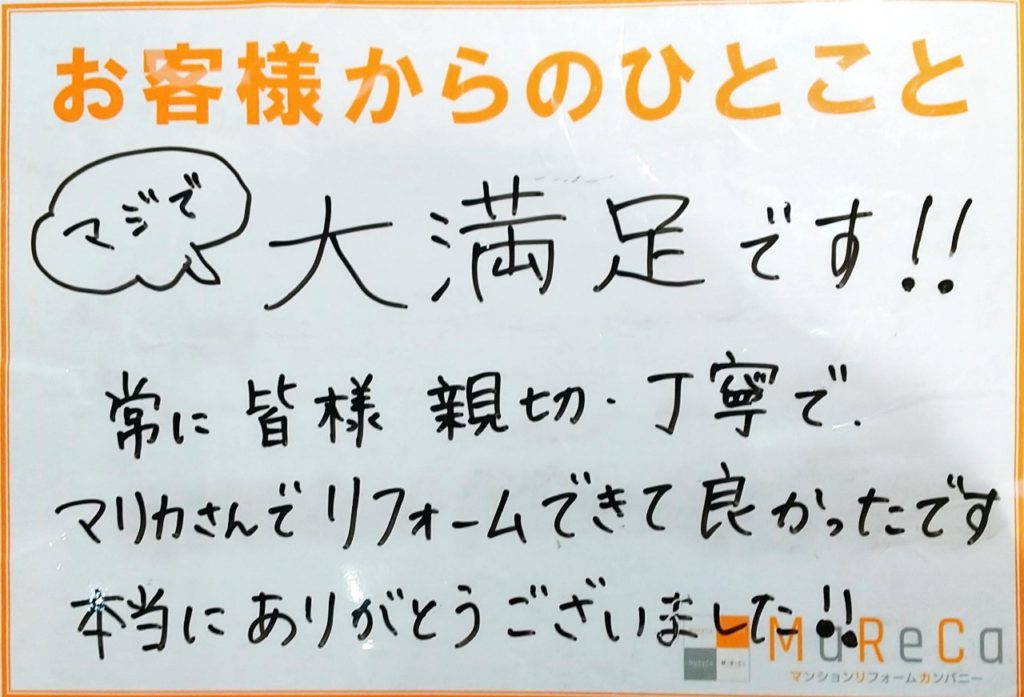 お客様からのひとこと
マジで
大満足です!!
常に皆様 親切・丁寧で.
マリカさんでリフォームできて良かったです
本当にありがとうございました!!
MaReCa
マンションリフォームカンパニー